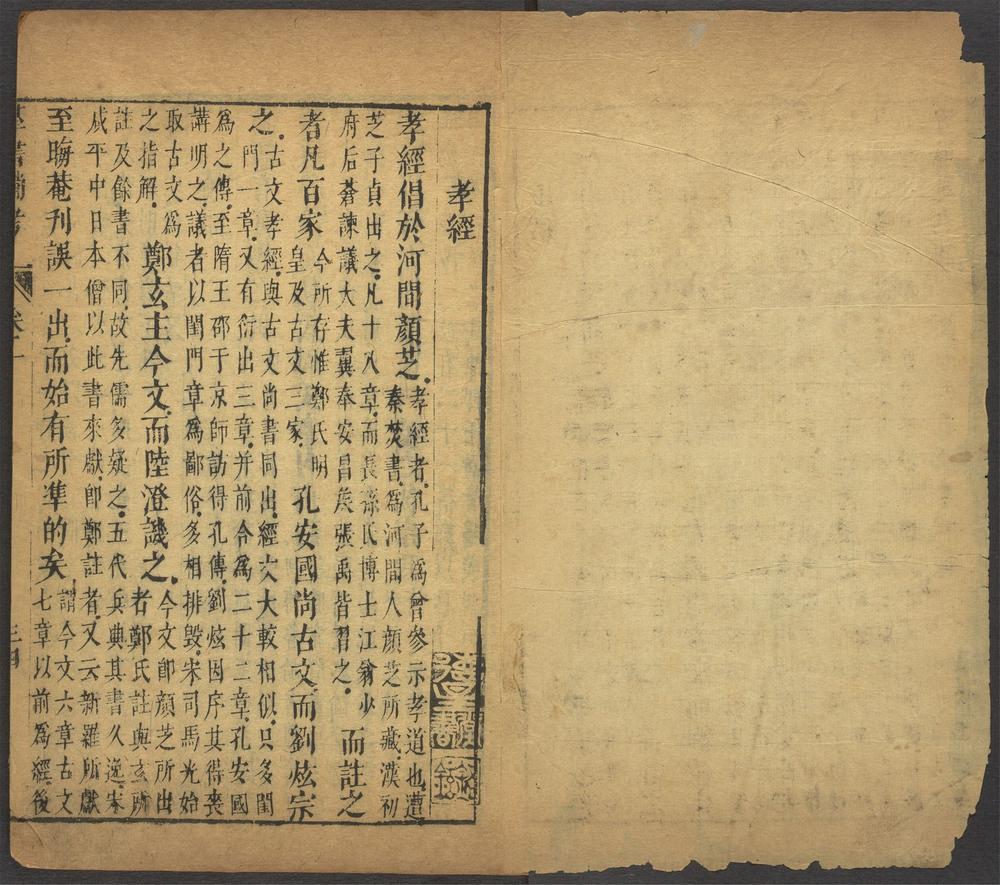 孝經
孝經倡於河間顏芝
孝經者孔子為曾參示孝道也遭
秦焚書為河間人顏芝所藏漢初
芝子貞出之凡十八章而長孫氏博士江翁少
府后蒼諫議大夫翼奉安昌侯張禹皆習之
而註之
者凡百家
今所存惟鄭氏明
皇及古文三家
孔安國尚古文而劉炫宗
之
古文孝經與古文尚書同出經文大較相似只多閨
門一章又有衍出三章并前合為二十二章孔安國
為之傳至隋王邵于京師訪得孔傳劉炫因序其得喪
講明之議者以閨門章為鄙俗多相排毀宋司馬光始
取古文為
之指解
鄭玄主今文而陸澄譏之
今文即顏芝所出
者鄭氏註與玄所
註及餘書不同故先儒多疑之五代兵典其書久逸宋
咸平中日本僧以此書來獻即鄭註者又云新羅所獻
至晦菴刊誤一出而始有所準的矣
謂今文六章古文
七章以前為經後